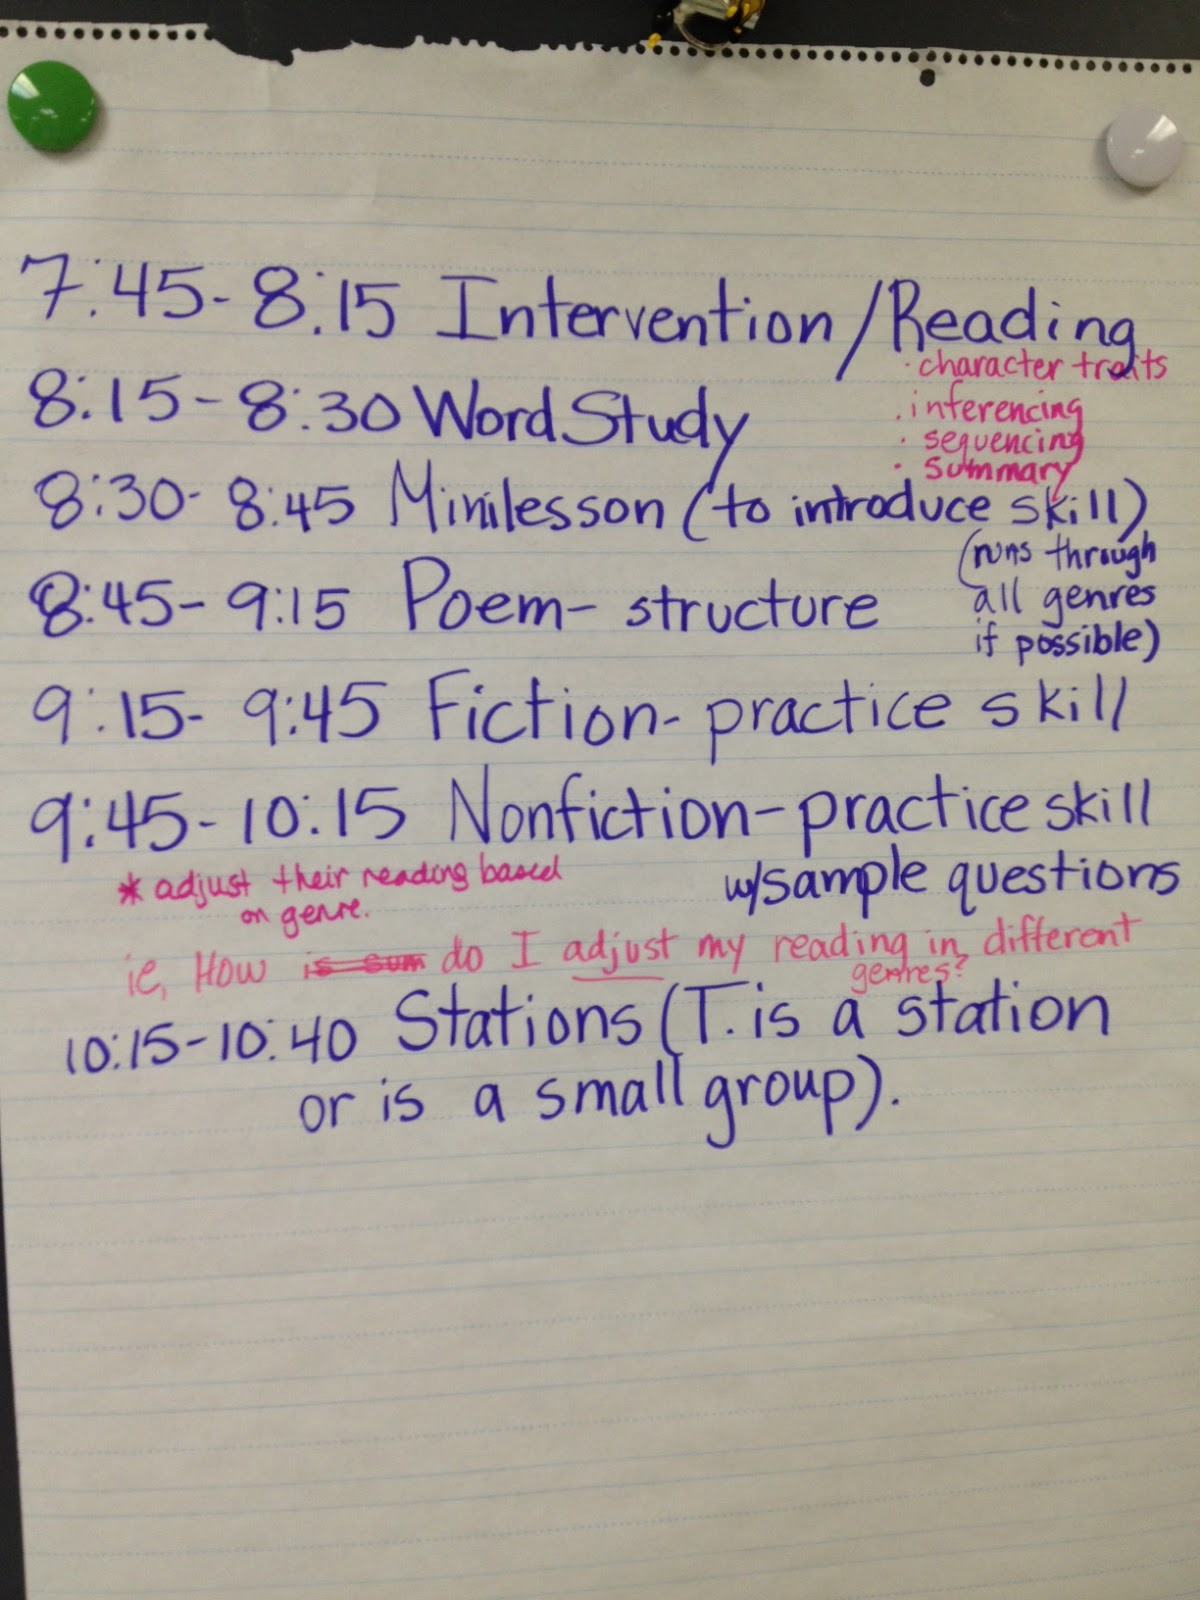 7:45-8:15 Intervention/Reading
· character traits
8:15-8:30 Word Study
· inferencing
· sequencing
· summary
8:30-8:45 Minilesson (to introduce skill)
(runs through
all genres
if possible)
8:45-9:15 Poem- structure
9:15-9:45 Fiction- practice skill
9:45-10:15 Nonfiction-practice skill
w/sample questions
* adjust their reading based
on genre.
ie, How is sum do I adjust my reading in different
genres?
10:15-10:40 Stations (T. is a station
or is a small group).